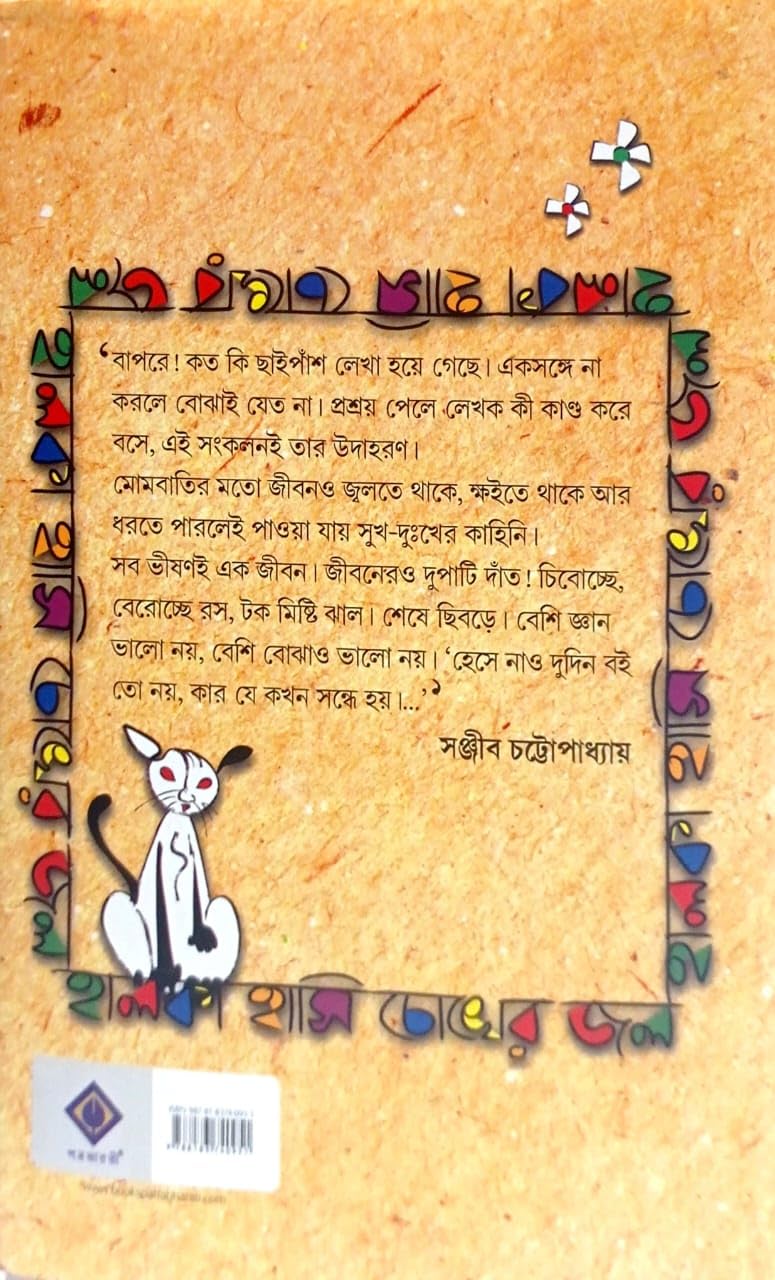 হালকা হাসি চোখের জল
‘বাপরে! কত কি ছাইপাঁশ লেখা হয়ে গেছে। একসঙ্গে না
করলে বোঝাই যেত না। প্রশ্রয় পেলে লেখক কী কাণ্ড করে
বসে, এই সংকলনই তার উদাহরণ।
মোমবাতির মতো জীবনও জ্বলতে থাকে, ক্ষইতে থাকে আর
ধরতে পারলেই পাওয়া যায় সুখ-দুঃখের কাহিনি।
সব ভীষণই এক জীবন। জীবনেরও দুপাটি দাঁত! চিবোচ্ছে,
বেরোচ্ছে রস, টক মিষ্টি ঝাল। শেষে ছিবড়ে। বেশি জ্ঞান
ভালো নয়, বেশি বোঝাও ভালো নয়। ‘হেসে নাও দুদিন বই
তো নয়, কার যে কখন সন্ধে হয়।...’’
সঞ্জীব চট্টোপাধ্যায়
হালকা হাসি চোখের জল
হালকা হাসি চোখের জল
হালকা হাসি চোখের জল
পত্রভারতী